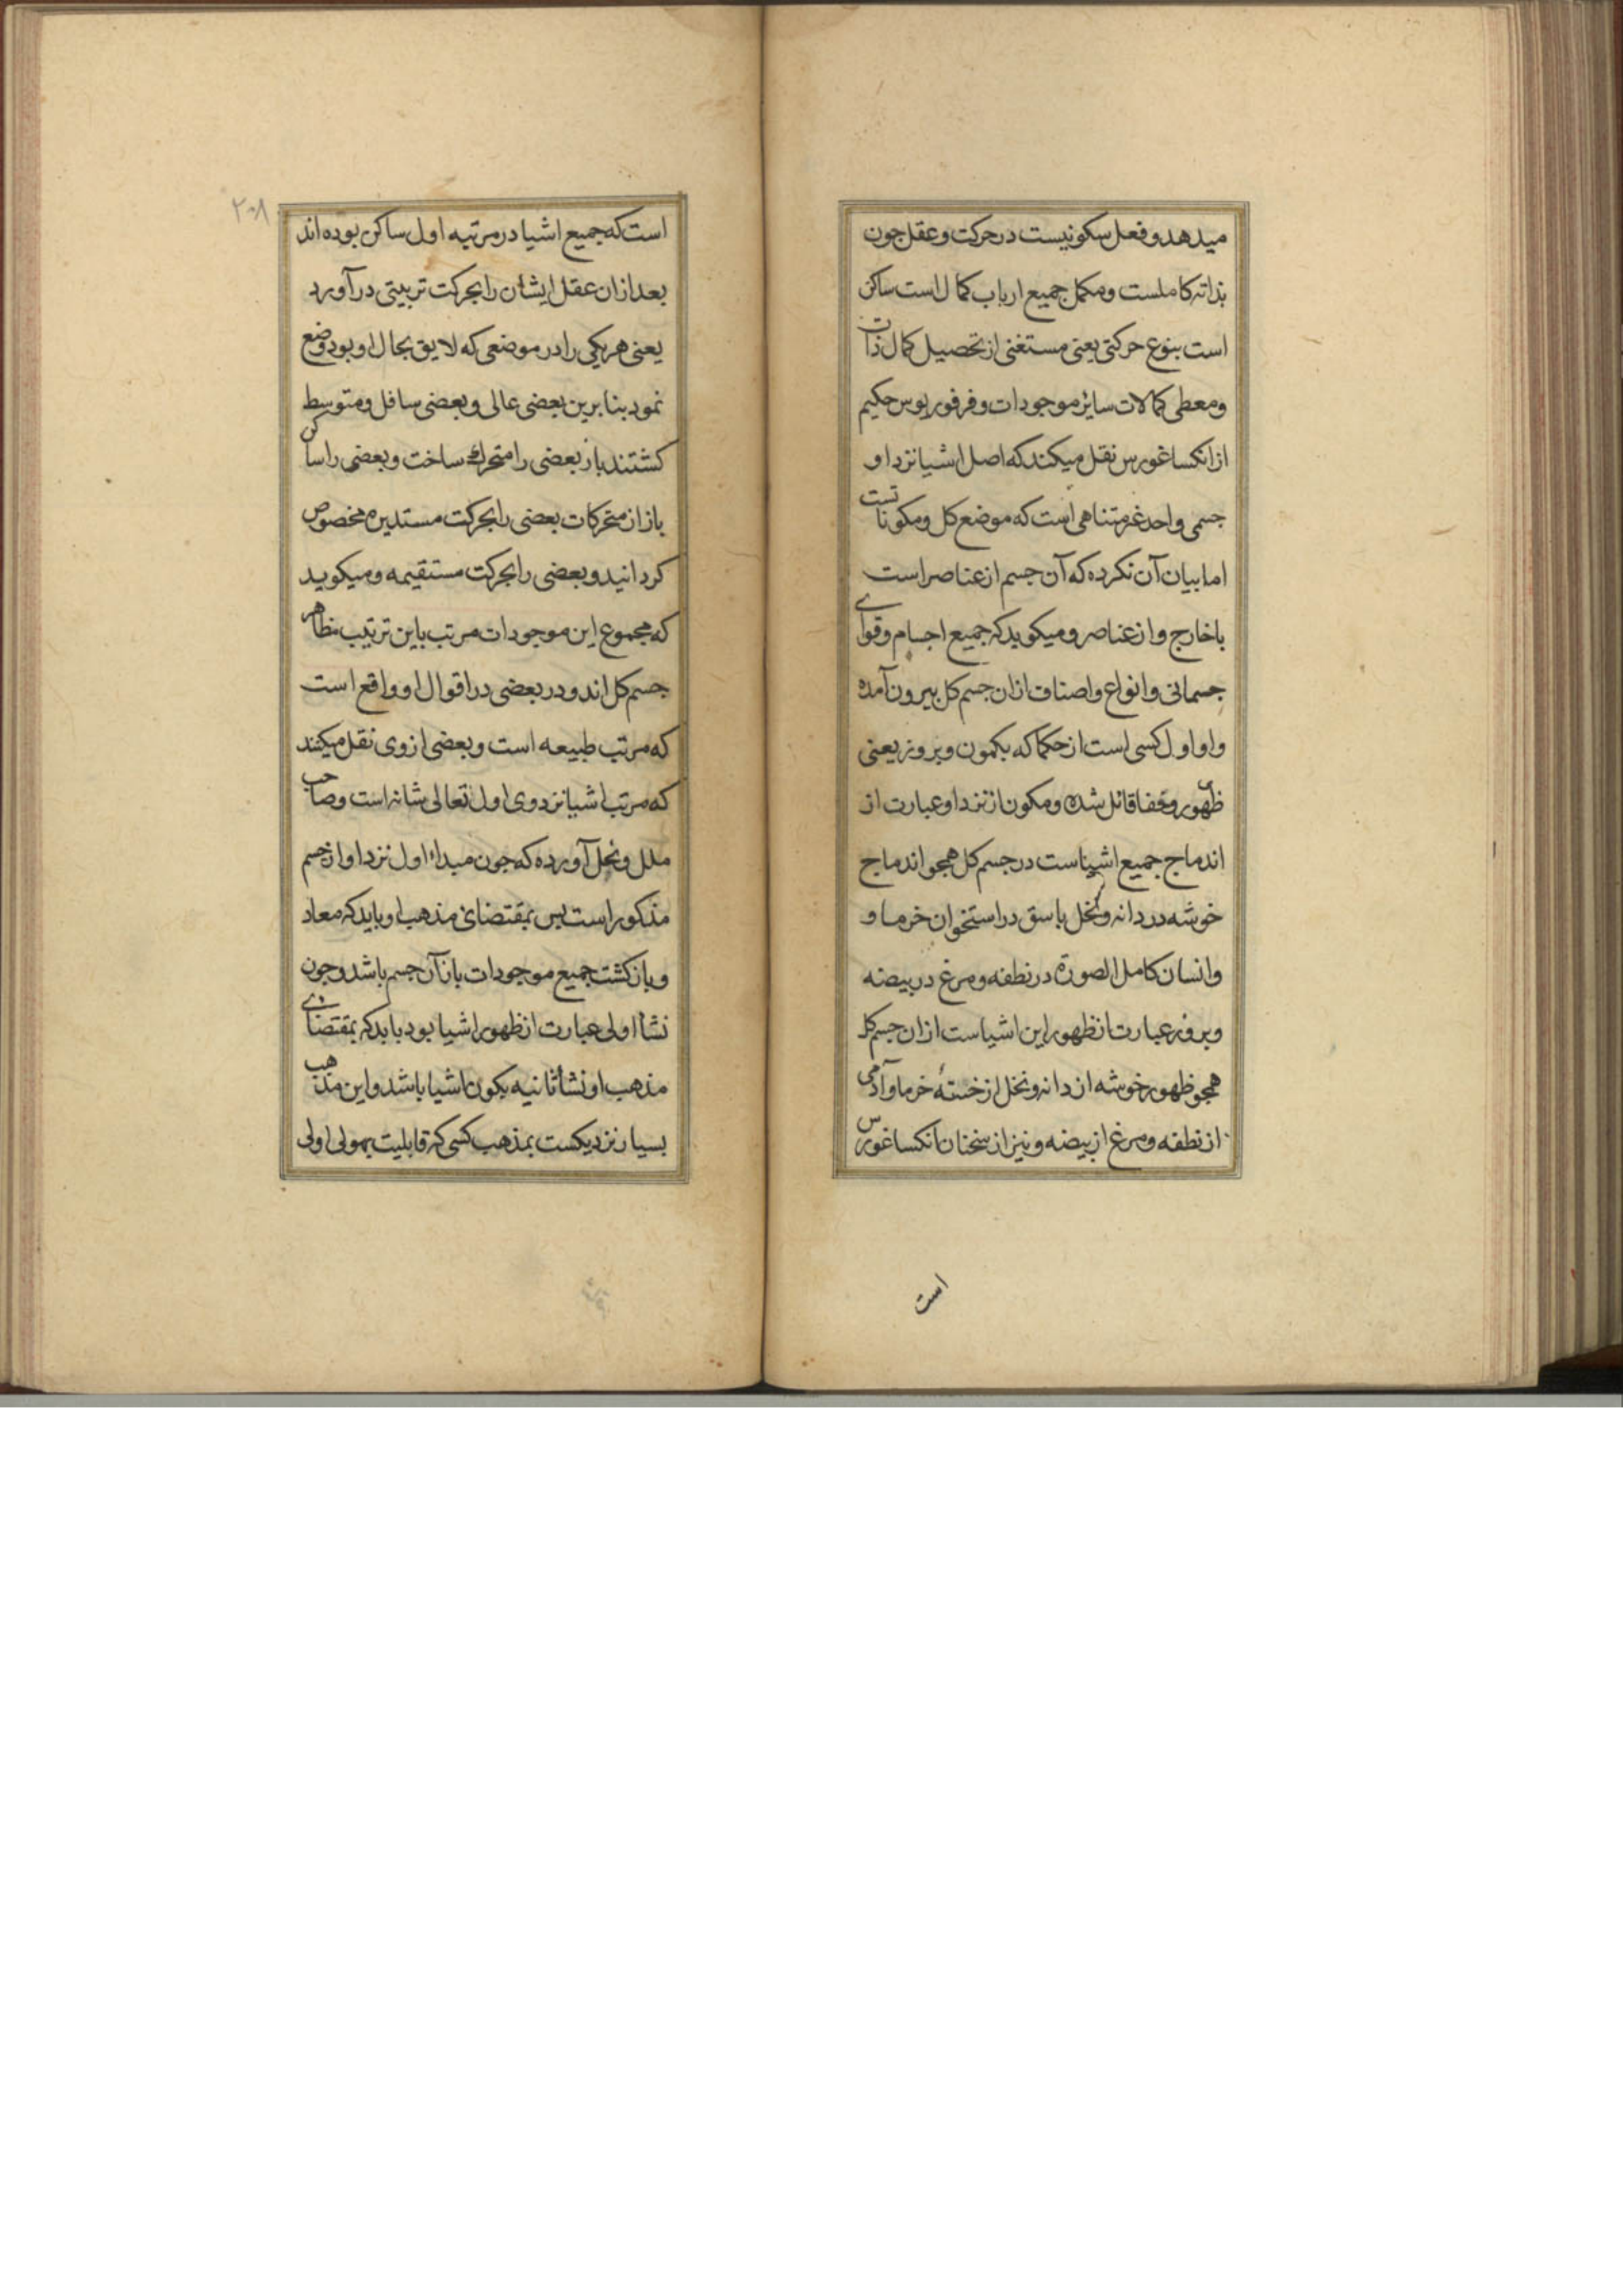 میدهد و فعل سکونیست در حرکت و عقل جون
بذاته کاملست و مکمل جمیع ارباب کمال است ساکن
است بنوع حرکتی یعنی مستغنی از تحصیل کمال ذات
و معطی کمالات سائر موجودات و فرفوریوس حکیم
از انکساغورس نقل میکند که اصل اشیا نزد او
جسمی واحد غیر متناهی است که موضع کل و مکوناتست
اما بیان آن نکرده که آن جسم از عناصر است
یا خارج و از عناصر و میکوید که جمیع اجسام و قوای
جسمانی و انواع و اصناف ازان جسم کل بیرون آمده
و او اول کسی است از حکما که بکمون و بروز یعنی
ظهور و خفا قائل شده و مکون از نزد او عبارت از
اندماج جمیع اشیاست در جسم کل همجو اندماج
خوشه در دانه و نخل باسق در استخوان خرما و
و انسان کامل الصورة در نطفه و مرغ در بیضه
و بروز عبارت از ظهور این اشیاست ازان جسم کل
همجو ظهور خوشه از دانه و نخل از خستهٔ خرما و آدمی
از نطفه و مرغ از بیضه و نیز از سخنان انکساغورس
است
۲۰۸
است که جمیع اشیا در مرتبه اول ساکن بوده اند
بعد ازان عقل ایشان را بحرکت تربیتی در آورد
یعنی هر یکی را در موضعی که لایق بحال او بود وضع
نمود بنا برین بعضی عالی و بعضی سافل و متوسط
کشتند باز بعضی را متحرك ساخت و بعضی را ساکن
باز از متحرکات بعضی را بحرکت مستدیره مخصوص
کردانید و بعضی را بحرکت مستقیمه و میکوید
که مجموع این موجودات مرتب باین ترتیب مظاهر
جسم کل اند و در بعضی در اقوال او واقع است
که مرتب طبیعه است و بعضی از وی نقل میکنند
که مرتب اشیا نزد وی اول تعالی شانه است و صاحب
ملل و نحل آورده که جون مبداء اول نزد او ان جسم
مذکور است بس بمقتضای مذهب او باید که معاد
و بازکشت جمیع موجودات باز آن جسم باشد و جون
نشأ اولی عبارت از ظهور اشیا بود باید که بمقتضای
مذهب او نشأ ثانیه بکون اشیا باشد و این مذهب
بسیار نزدیکست بمذهب کسی که قابلیت بهولی اولی